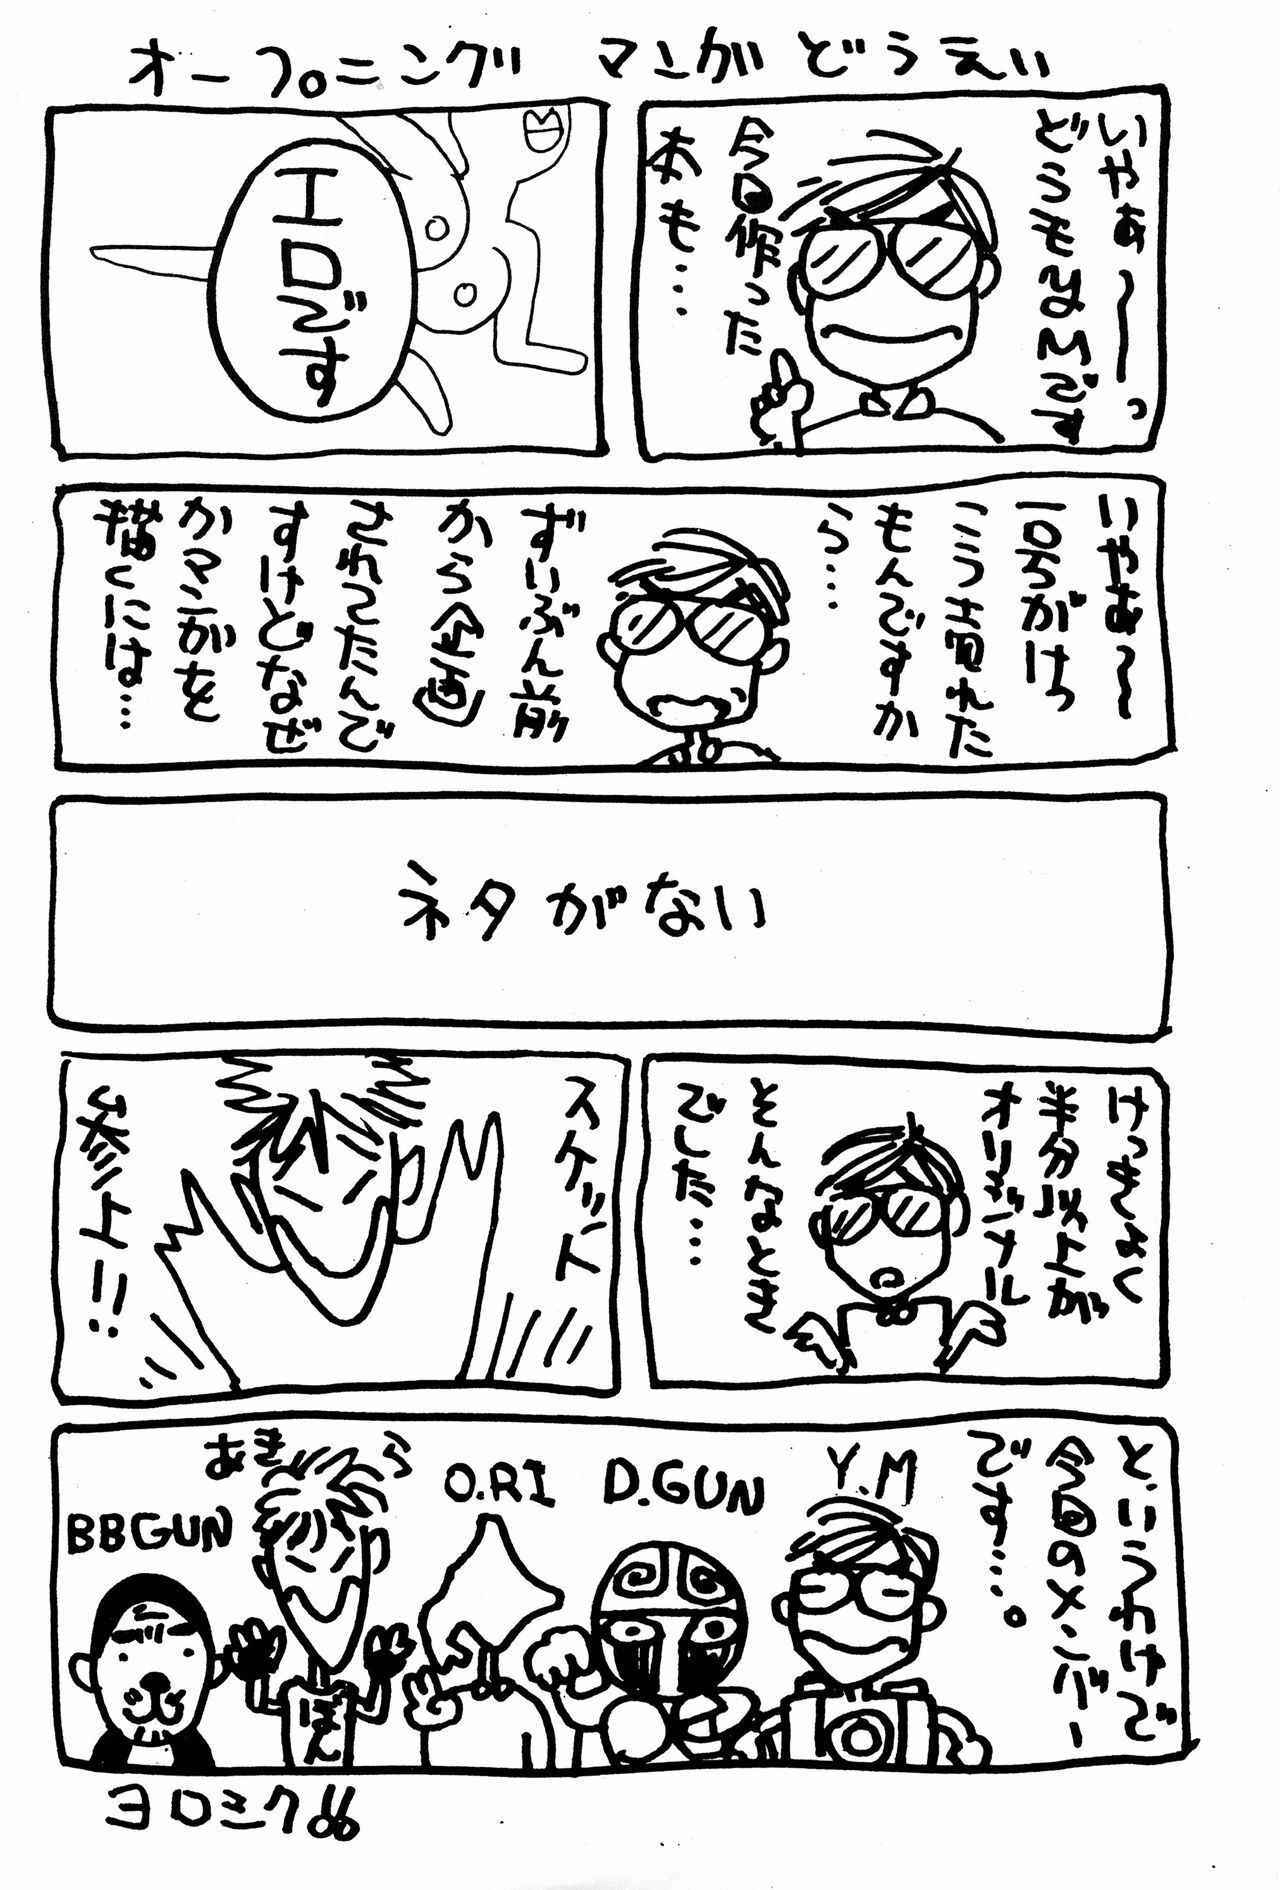 オープニング マンガ どうえい
いやぁ〜〜っ
どうもY.Mです
今回作った
本も…
エロです
いやぁ〜〜
一回ちがけ
こう
もんですか
ら…
ずいぶん前
から企画
されてたんで
すけどなぜ
かマンガを
描くには…
ネタがない
けっきょく
半分以上が
オリジナル
そんなとき
でした…
スケット
参上!!
というわけで
今回のメンバー
です…。
Y.M
D.GUN
O.RI
あきら
BBGUN
ぼん
ヨロミク!!